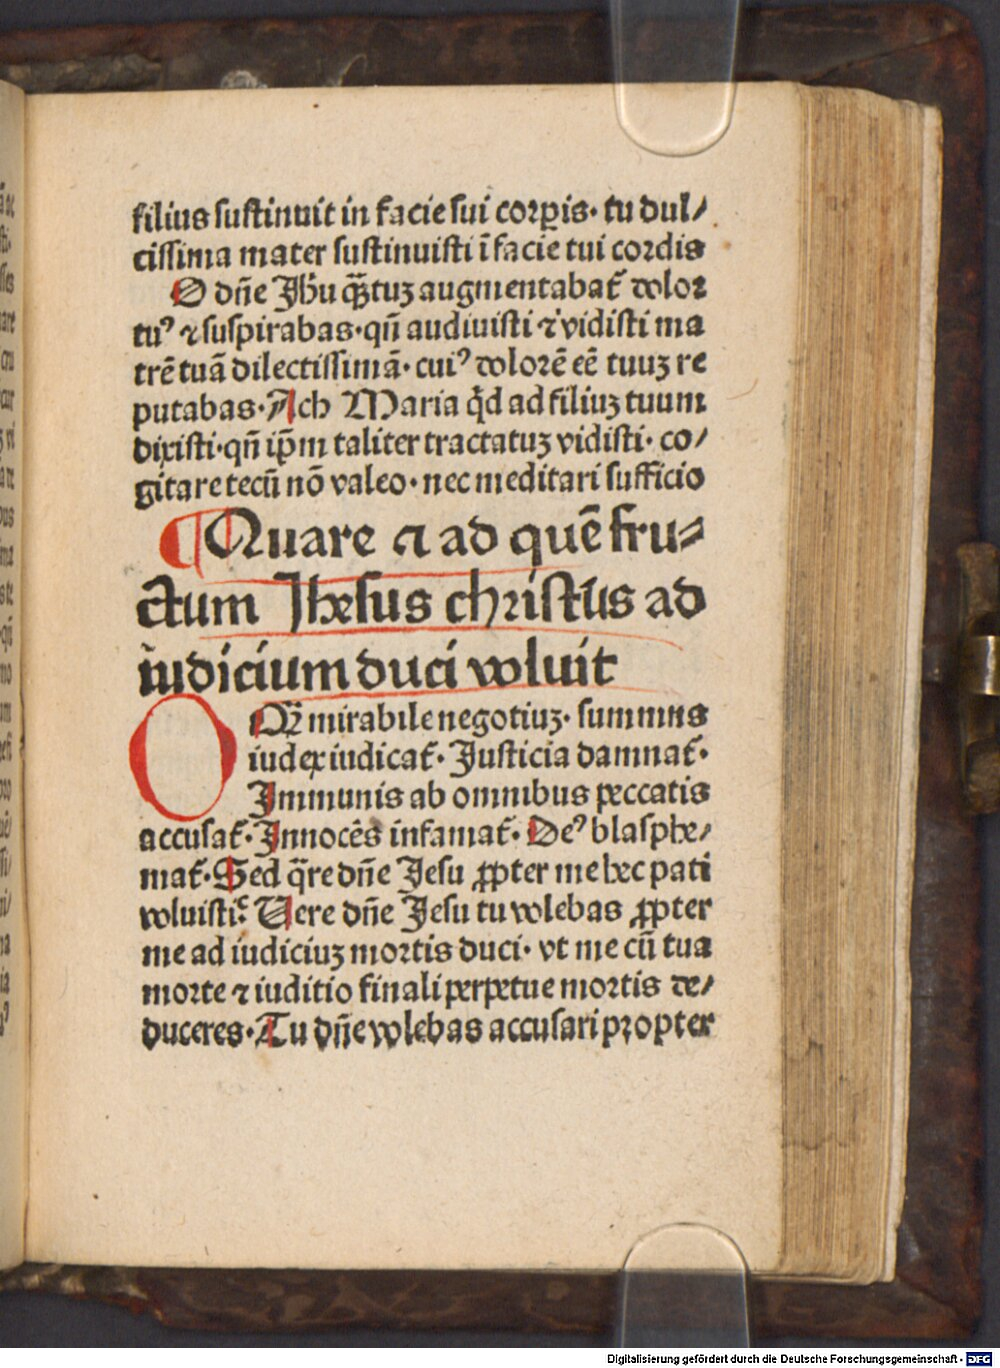 filius sustinuit in facie sui corꝑis· tu dul⸗
cissima mater sustinuisti ī facie tui cordis
O dn̄e Jhū qͣꝫtuꝫ augmentabat᷑ dolor
tuꝰ ⁊ suspirabas· qn̄ audiuisti ⁊ vidisti ma
trē tuā dilectissimā· cuiꝰ dolorē eē tuuꝫ re
putabas· Ach Maria qͥd ad filiuꝫ tuum
dixisti· qn̄ ip̄m taliter tractatuꝫ vidisti· co⸗
gitare tecū nō valeo· nec meditari sufficio
¶ Quare ⁊ ad quē fru⸗
ctum Jhesus christus ad
iudicium duci voluit
O Qͣꝫ mirabile negotiuꝫ· summus
iudex iudicat᷑· Justicia damnat᷑·
Immunis ab omnibus peccatis
accusat᷑· Innocēs infamat᷑· Deꝰ blasphe⸗
mat᷑· Sed q̄re dn̄e Jesu ꝓpter me hec pati
voluisti: Uere dn̄e Jesu tu volebas ꝓpter
me ad iudiciuꝫ mortis duci· vt me cū tua
morte ⁊ iuditio finali perpetue mortis de⸗
duceres· Tu dn̄e volebas accusari propter
Digitalisierung gefördert durch die Deutsche Forschungsgemeinschaft - DFG